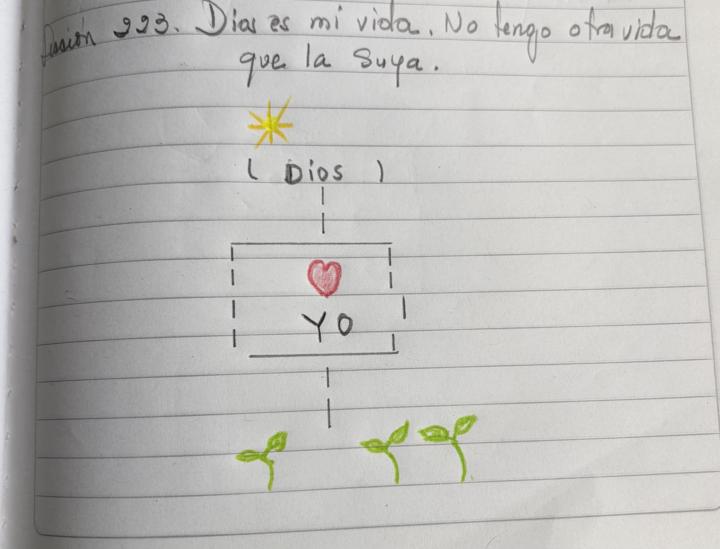 Lección 223. Dios es mi vida. No tengo otra vida
que la Suya.
( Dios )
YO